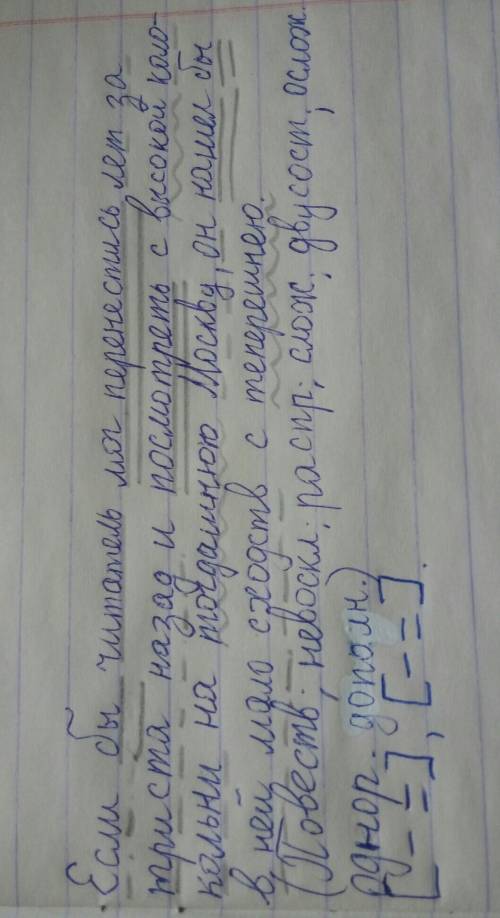 Если бы читатель мог перенестись лет за
триста назад и посмотреть с высокой коло-
кольни на тогдашнюю Москву, он нашел бы
в ней мало сходств с теперешнею.
(Повеств; невоскл; распр; слож; двусост; ослож.
однор. дополн.)
[— =], [— =].